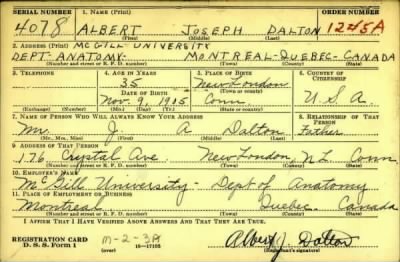 SERIAL NUMBER 1. NAME (Print) ORDER NUMBER
4078 ALBERT JOSEPH DALTON 1245A
(First) (Middle) (Last)
2. ADDRESS (Print) MCGILL UNIVERSITY
DEPT-ANATOMY- MONTREAL-QUEBEC-CANADA
(Number and street or R. F. D. number) (Town) (County) (State)
3. TELEPHONE 4. AGE IN YEARS 5. PLACE OF BIRTH 6. COUNTRY OF CITIZENSHIP
35 New London
DATE OF BIRTH (Town or county)
Nov. 9, 1905 Conn U.S.A.
(Exchange) (Number) (Mo.) (Day) (Yr.) (State or country)
7. NAME OF PERSON WHO WILL ALWAYS KNOW YOUR ADDRESS 8. RELATIONSHIP OF THAT PERSON
Mr. J A Dalton Father
(Mr., Mrs., Miss) (First) (Middle) (Last)
9. ADDRESS OF THAT PERSON
176 Crystal Ave New London, N.L. Conn
(Number and street or R. F. D. number) (Town) (County) (State)
10. EMPLOYER'S NAME
McGill University - Dept of Anatomy
11. PLACE OF EMPLOYMENT OR BUSINESS
Montreal Quebec Canada
(Number and street or R. F. D. number) (Town) (County) (State)
I AFFIRM THAT I HAVE VERIFIED ABOVE ANSWERS AND THAT THEY ARE TRUE.
REGISTRATION CARD M-2-3A Albert J. Dalton
D. S. S. Form 1 (over) 16-17105 (Registrant's signature)